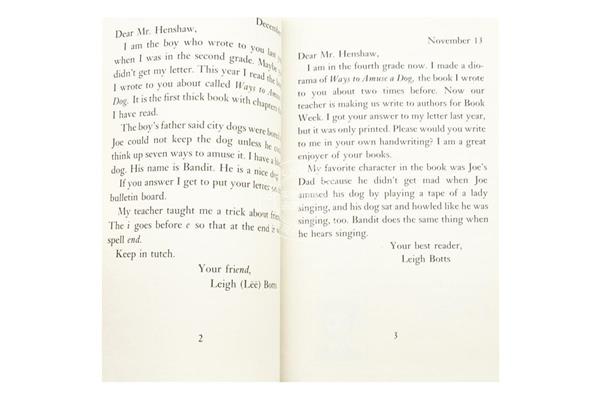 Decembe
Dear Mr. Henshaw,
I am the boy who wrote to you last
when I was in the second grade. Maybe
didn't get my letter. This year I read the
I wrote to you about called Ways to Amus
Dog. It is the first thick book with chapters
I have read.
The boy's father said city dogs were bored
Joe could not keep the dog unless he co
think up seven ways to amuse it. I have a
dog. His name is Bandit. He is a nice dog
If you answer I get to put your letter
bulletin board.
My teacher taught me a trick about frien
The i goes before e so that at the end it
spell end.
Keep in tutch.
Your friend,
Leigh (Lee) Botts
2
November 13
Dear Mr. Henshaw,
I am in the fourth grade now. I made a dio-
rama of Ways to Amuse a Dog, the book I wrote
to you about two times before. Now our
teacher is making us write to authors for Book
Week. I got your answer to my letter last year,
but it was only printed. Please would you write
to me in your own handwriting? I am a great
enjoyer of your books.
My favorite character in the book was Joe's
Dad because he didn't get mad when Joe
amused his dog by playing a tape of a lady
singing, and his dog sat and howled like he was
singing, too. Bandit does the same thing when
he hears singing.
Your best reader,
Leigh Botts
3